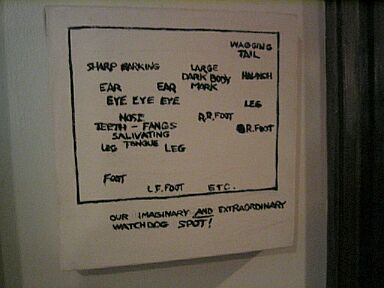 WAGGING
TAIL
SHARP BARKING
LARGE
DARK BODY
MARK
HAUNCH
EAR EAR
EYE EYE EYE
LEG
NOSE
R.R.FOOT
TEETH - FANGS
R.FOOT
SALIVATING
TONGUE
LEG LEG
FOOT
L.F.FOOT ETC.
OUR IMAGINARY AND EXTRAORDINARY
WATCHDOG SPOT!